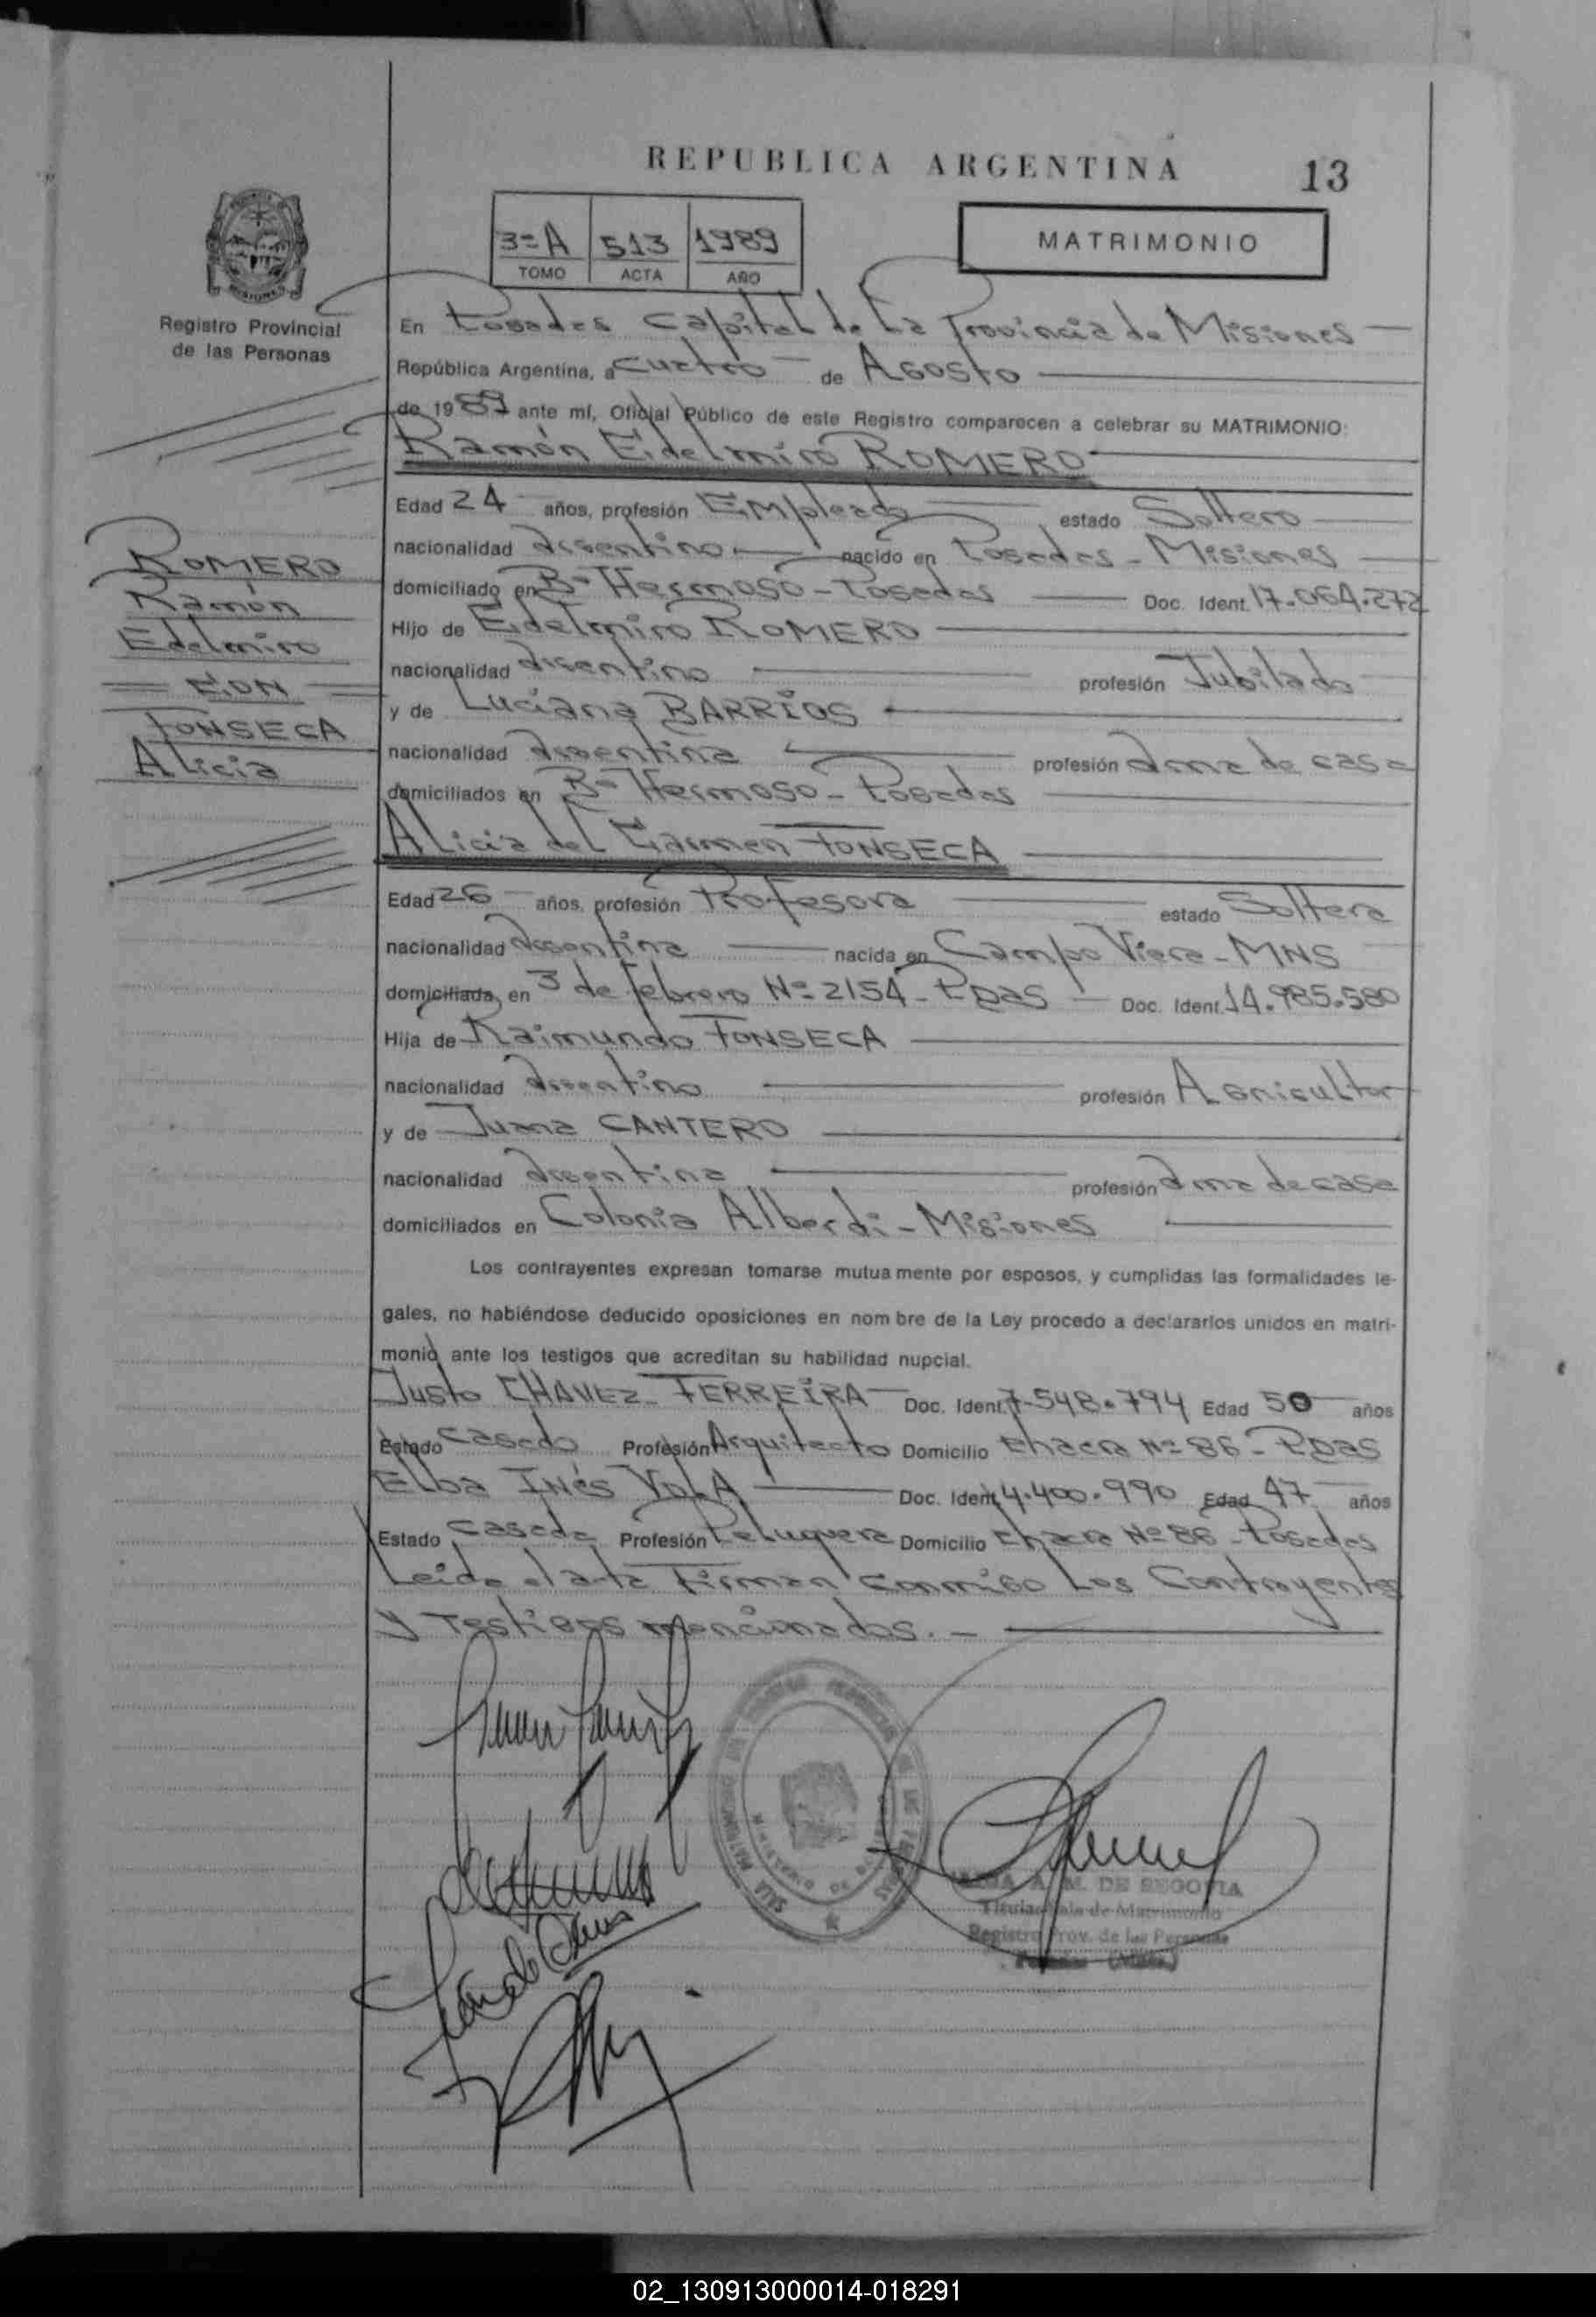 REPUBLICA ARGENTINA
13
3=A 513 1989
TOMO ACTA AÑO
MATRIMONIO
Registro Provincial
de las Personas
En Posadas Capital de La Provincia de Misiones
República Argentina, a cuatro de Agosto
de 1989 ante mí, Oficial Público de este Registro comparecen a celebrar su MATRIMONIO:
Ramón Edelmiro ROMERO
Edad 24 años, profesión Empleado estado Soltero
nacionalidad argentino nacido en Posadas - Misiones
domiciliado en Bº Hermoso - Posadas Doc. Ident. 17.064.272
Hijo de Edelmiro ROMERO
nacionalidad argentino profesión Jubilado
y de Luciana BARRIOS
nacionalidad argentina profesión ama de casa
domiciliados en Bº Hermoso - Posadas
ROMERO
Ramón
Edelmiro
= CON =
FONSECA
Alicia
Alicia del Carmen FONSECA
Edad 26 años, profesión Profesora estado Soltera
nacionalidad argentina nacida en Campo Viera - MNS
domiciliada en 3 de febrero Nº 2154 - Pdas Doc. Ident. 14.985.580
Hija de Raimundo FONSECA
nacionalidad argentino profesión Agricultor
y de Juana CANTERO
nacionalidad argentina profesión ama de casa
domiciliados en Colonia Alberdi - Misiones
Los contrayentes expresan tomarse mutuamente por esposos, y cumplidas las formalidades le-
gales, no habiéndose deducido oposiciones en nombre de la Ley procedo a declararlos unidos en matri-
monio ante los testigos que acreditan su habilidad nupcial.
Justo CHAVEZ FERREIRA Doc. Ident. 7.548.794 Edad 50 años
Estado Casado Profesión Arquitecto Domicilio Chacra Nº 86 - Pdas
Elba Inés Doc. Ident. 4.400.990 Edad 47 años
Estado Casada Profesión Peluquera Domicilio Chacra Nº 86 - Posadas
Leida el acta Firman conmigo Los Contrayentes
y Testigos mencionados. -
A. M. DE SEGOVIA
Titular Sala de Matrimonio
Registro Prov. de las Personas
Posadas (Mnes.)
02_130913000014-018291